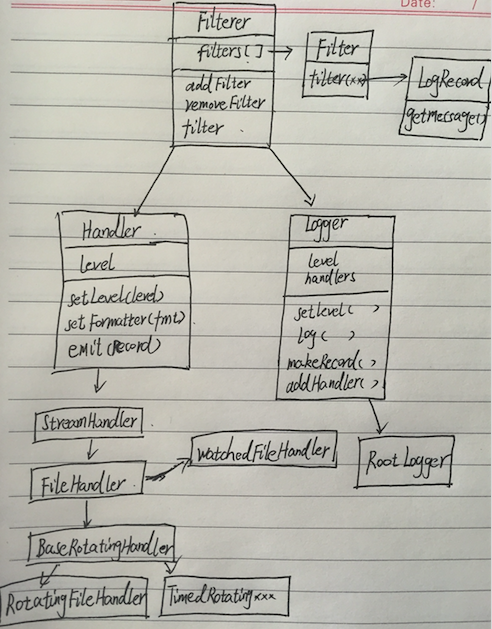 Date: /
Filterer
filters[]
addFilter
removeFilter
filter
Filter
filter(xx)
LogRecord
getmessage()
Handler
Level
setLevel(level)
setFormatter(fmt)
emit(Record)
Logger
Level
handlers
setLevel( )
Log( )
makeRecord( )
addHandler( )
StreamHandler
FileHandler
WatchedFileHandler
RootLogger
BaseRotatingHandler
RotatingFileHandler
TimedRotatingxxx